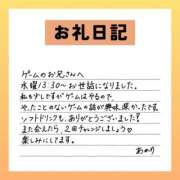 お礼日記
ゲームのお兄さんへ
水曜13:30〜お世話になりました。
私も少しですがゲームはやるので、
やったことのないゲームの話が興味深かったです。
ソフトドリンクも、ありがとうございました!
また会えたら、2回チャレンジしましょう♡
楽しみにしてます。
あかり